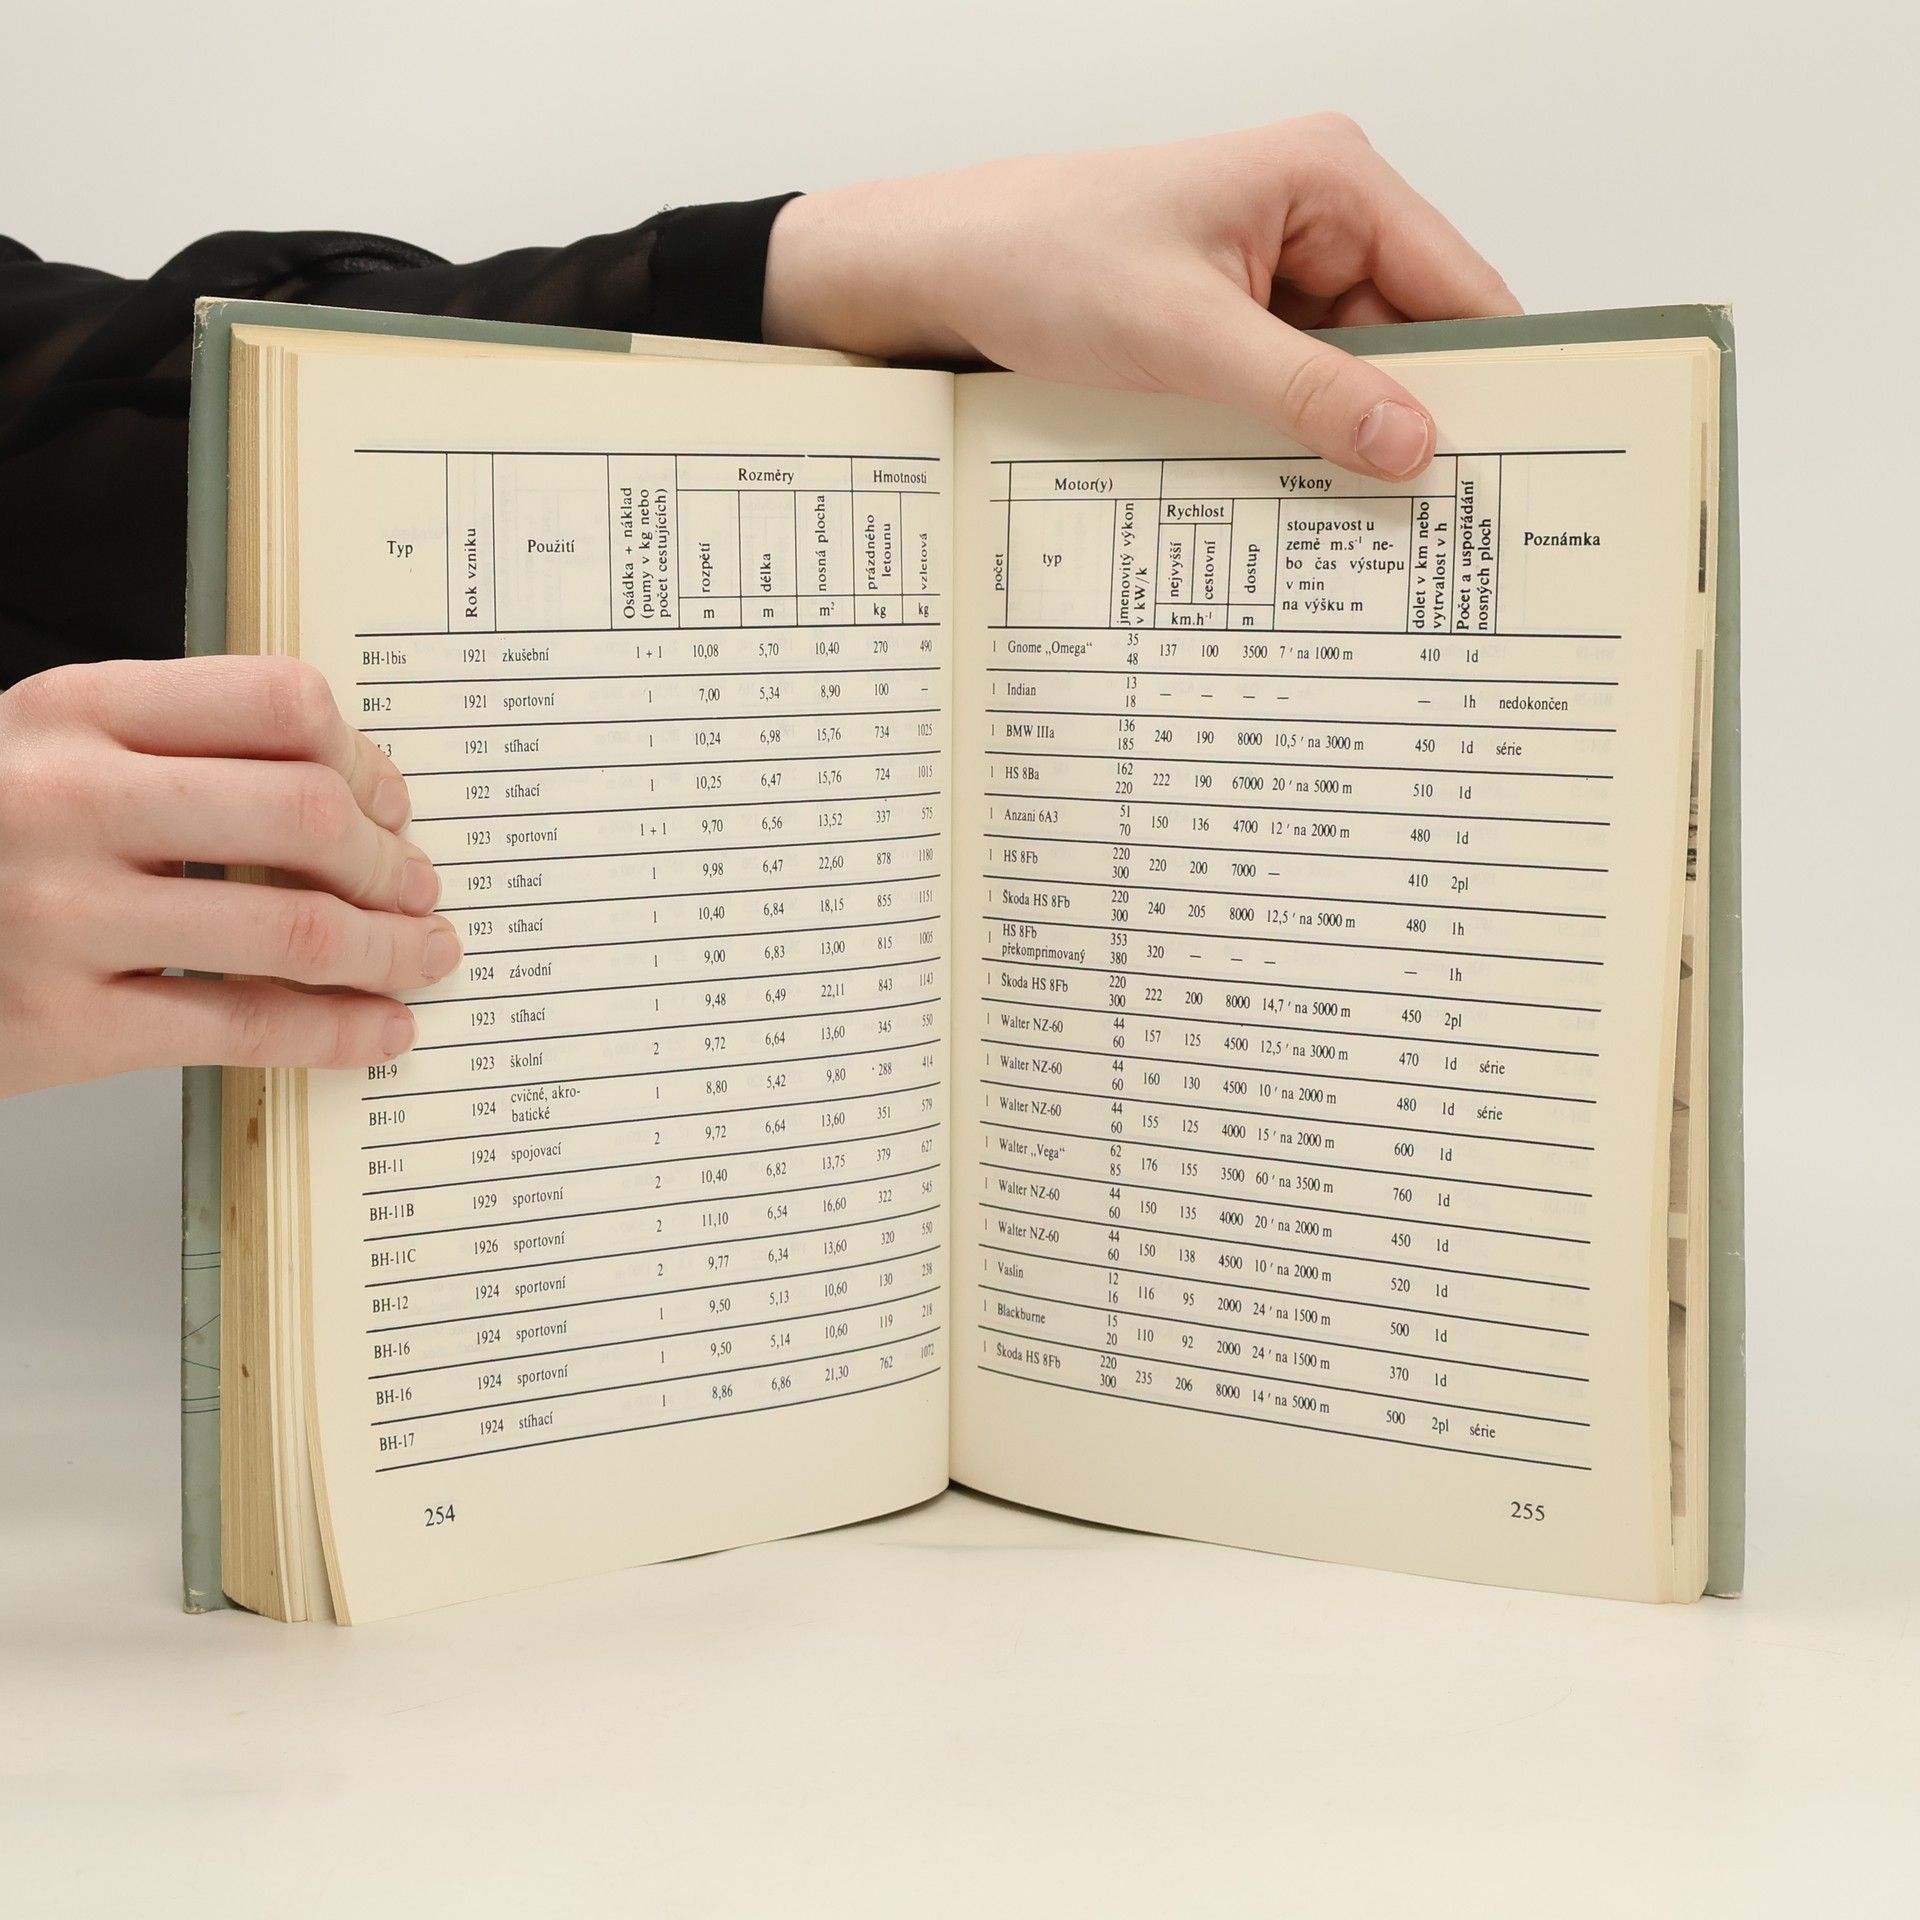 Typ Rok vzniku Použití Osádka + náklad (pumy v kg nebo počet cestujících) Rozměry Hmotnosti
rozpětí délka nosná plocha prázdného letounu vzletová
m m m² kg kg
BH-1bis 1921 zkušební 1 + 1 10,08 5,70 10,40 270 490
BH-2 1921 sportovní 1 7,00 5,34 8,90 100 —
-3 1921 stíhací 1 10,24 6,98 15,76 734 1025
1922 stíhací 1 10,25 6,47 15,76 724 1015
1923 sportovní 1 + 1 9,70 6,56 13,52 337 575
1923 stíhací 1 9,98 6,47 22,60 878 1180
1923 stíhací 1 10,40 6,84 18,15 855 1151
1924 závodní 1 9,00 6,83 13,00 815 1005
1923 stíhací 1 9,48 6,49 22,11 843 1143
BH-9 1923 školní 2 9,72 6,64 13,60 345 550
BH-10 1924 cvičné, akro-
batické 1 8,80 5,42 9,80 288 414
BH-11 1924 spojovací 2 9,72 6,64 13,60 351 579
BH-11B 1929 sportovní 2 10,40 6,82 13,75 379 627
BH-11C 1926 sportovní 2 11,10 6,54 16,60 322 545
BH-12 1924 sportovní 2 9,77 6,34 13,60 320 550
BH-16 1924 sportovní 1 9,50 5,13 10,60 130 238
BH-16 1924 sportovní 1 9,50 5,14 10,60 119 218
BH-17 1924 stíhací 1 8,86 6,86 21,30 762 1072
254
počet Motor(y) Výkony Počet a uspořádání nosných ploch Poznámka
typ jmenovitý výkon v kW/k Rychlost nejvyšší cestovní dostup
stoupavost u
země m.s⁻¹ ne-
bo čas výstupu
v min
na výšku m
dolet v km nebo vytrvalost v h
km.h⁻¹ m
1 Gnome „Omega“ 35 48 137 100 3500 7 ′ na 1000 m 410 1d
1 Indian 13 18 — — — — — 1h nedokončen
1 BMW IIIa 136 185 240 190 8000 10,5 ′ na 3000 m 450 1d série
1 HS 8Ba 162 220 222 190 67000 20 ′ na 5000 m 510 1d
1 Anzani 6A3 51 70 150 136 4700 12 ′ na 2000 m 480 1d
1 HS 8Fb 220 300 220 200 7000 — 410 2pl
1 Škoda HS 8Fb 220 300 240 205 8000 12,5 ′ na 5000 m 480 1h
1 HS 8Fb
překomprimovaný 353 380 320 — — — — 1h
1 Škoda HS 8Fb 220 300 222 200 8000 14,7 ′ na 5000 m 450 2pl
1 Walter NZ-60 44 60 157 125 4500 12,5 ′ na 3000 m 470 1d série
1 Walter NZ-60 44 60 160 130 4500 10 ′ na 2000 m 480 1d série
1 Walter NZ-60 44 60 155 125 4000 15 ′ na 2000 m 600 1d
1 Walter „Vega“ 62 85 176 155 3500 60 ′ na 3500 m 760 1d
1 Walter NZ-60 44 60 150 135 4000 20 ′ na 2000 m 450 1d
1 Walter NZ-60 44 60 150 138 4500 10 ′ na 2000 m 520 1d
1 Vaslin 12 16 116 95 2000 24 ′ na 1500 m 500 1d
1 Blackburne 15 20 110 92 2000 24 ′ na 1500 m 370 1d
1 Škoda HS 8Fb 220 300 235 206 8000 14 ′ na 5000 m 500 2pl série
255